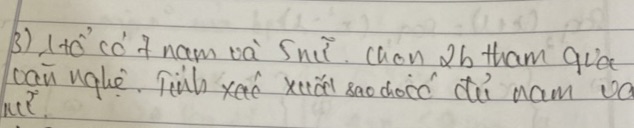 3) 1 tổ có 7 nam và 5 nữ. chọn 2b tham gia
văn nghệ. Tính xác xuất sao cho có đủ nam và
nữ.